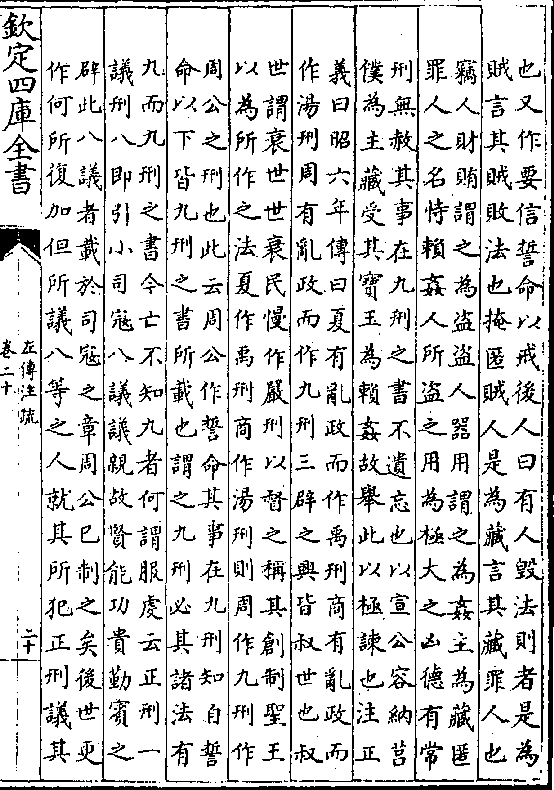 也又作要信誓命以戒後人曰有人毀法則者是為
賊言其賊敗法也掩匿賊人是為藏言其藏罪人也
竊人財賄謂之為盗盗人器用謂之為姦主為藏匿
罪人之名恃賴姦人所盗之用為極大之凶德有常
刑無赦其事在九刑之書不遺忘也以宣公容納莒
僕為主藏受其寶玉為賴姦故舉此以極諫也注正
義曰昭六年傳曰夏有亂政而作禹刑商有亂政而
作湯刑周有亂政而作九刑三辟之興皆叔世也叔
世謂衰世世衰民慢作嚴刑以督之稱其創制聖王
以為所作之法夏作禹刑商作湯刑則周作九刑作
周公之刑也此云周公作誓命其事在九刑知自誓
命以下皆九刑之書所載也謂之九刑必其諸法有
九而九刑之書今亡不知九者何謂服虔云正刑一
議刑八即引小司寇八議議親故賢能功貴勤賓之
辟此八議者載於司寇之章周公已制之矣後世更
作何所復加但所議八等之人就其所犯正刑議其
欽定四庫全書
左傳注疏
卷二十
二十